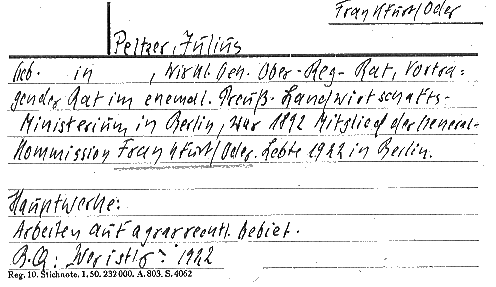 Frankfurt/Oder
Peltzer, Julius
Geb. in , Wirkl. Geh. Ober-Reg-Rat, Vortra-
gender Rat im ehemal. Preuß. Landwirtschafts-
Ministerium in Berlin, war 1892 Mitglied der General-
Kommission Frankfurt/Oder. Lebte 1922 in Berlin.
Hauptwerke:
Arbeiten auf agrarrechtl. Gebiet.
B.Q: Wer ist's? 1922
Reg. 10. Stichnote. I. 50. 232 000. A. 803. S. 4062